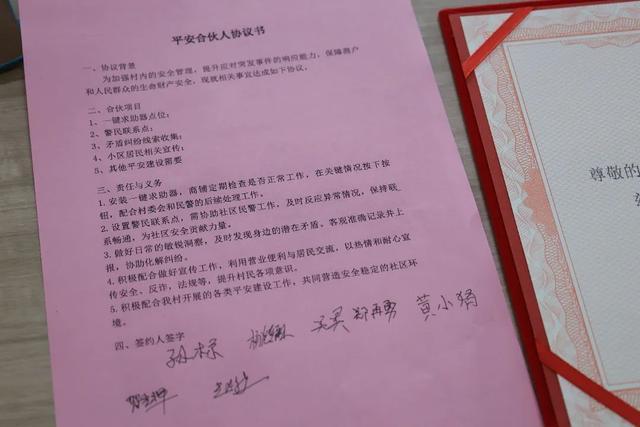 平安合伙人协议书
一、协议背景
为加强村内的安全管理，提升应对突发事件的响应能力，保障商户
和人民群众的生命财产安全，现就相关事宜达成如下协议，
二、合伙项目
1、一键求助器点位；
2、警民联系点；
3、矛盾纠纷线索收集；
4、小区居民相关宣传；
5、其他平安建设需要
三、责任与义务
1.安装一键求助器，商铺定期检查是否正常工作，在关键情况按下按
钮，配合村委会和民警的后续处理工作。
2.设置警民联系点，需协助社区民警工作，及时反应异常情况，保持联
系畅通，为社区安全贡献力量。
3.做好日常的敏锐洞察，及时发现身边的潜在矛盾。客观准确记录并上
报，协助化解纠纷。
4.积极配合做好宣传工作，利用营业便利与居民交流，以热情和耐心宣
传安全、反诈，法规等，提升村民各项意识。
5.积极配合我村开展的各类平安建设工作，共同营造安全稳定的社区环
境。
四、签约人签字
黄小娟
尊敬的